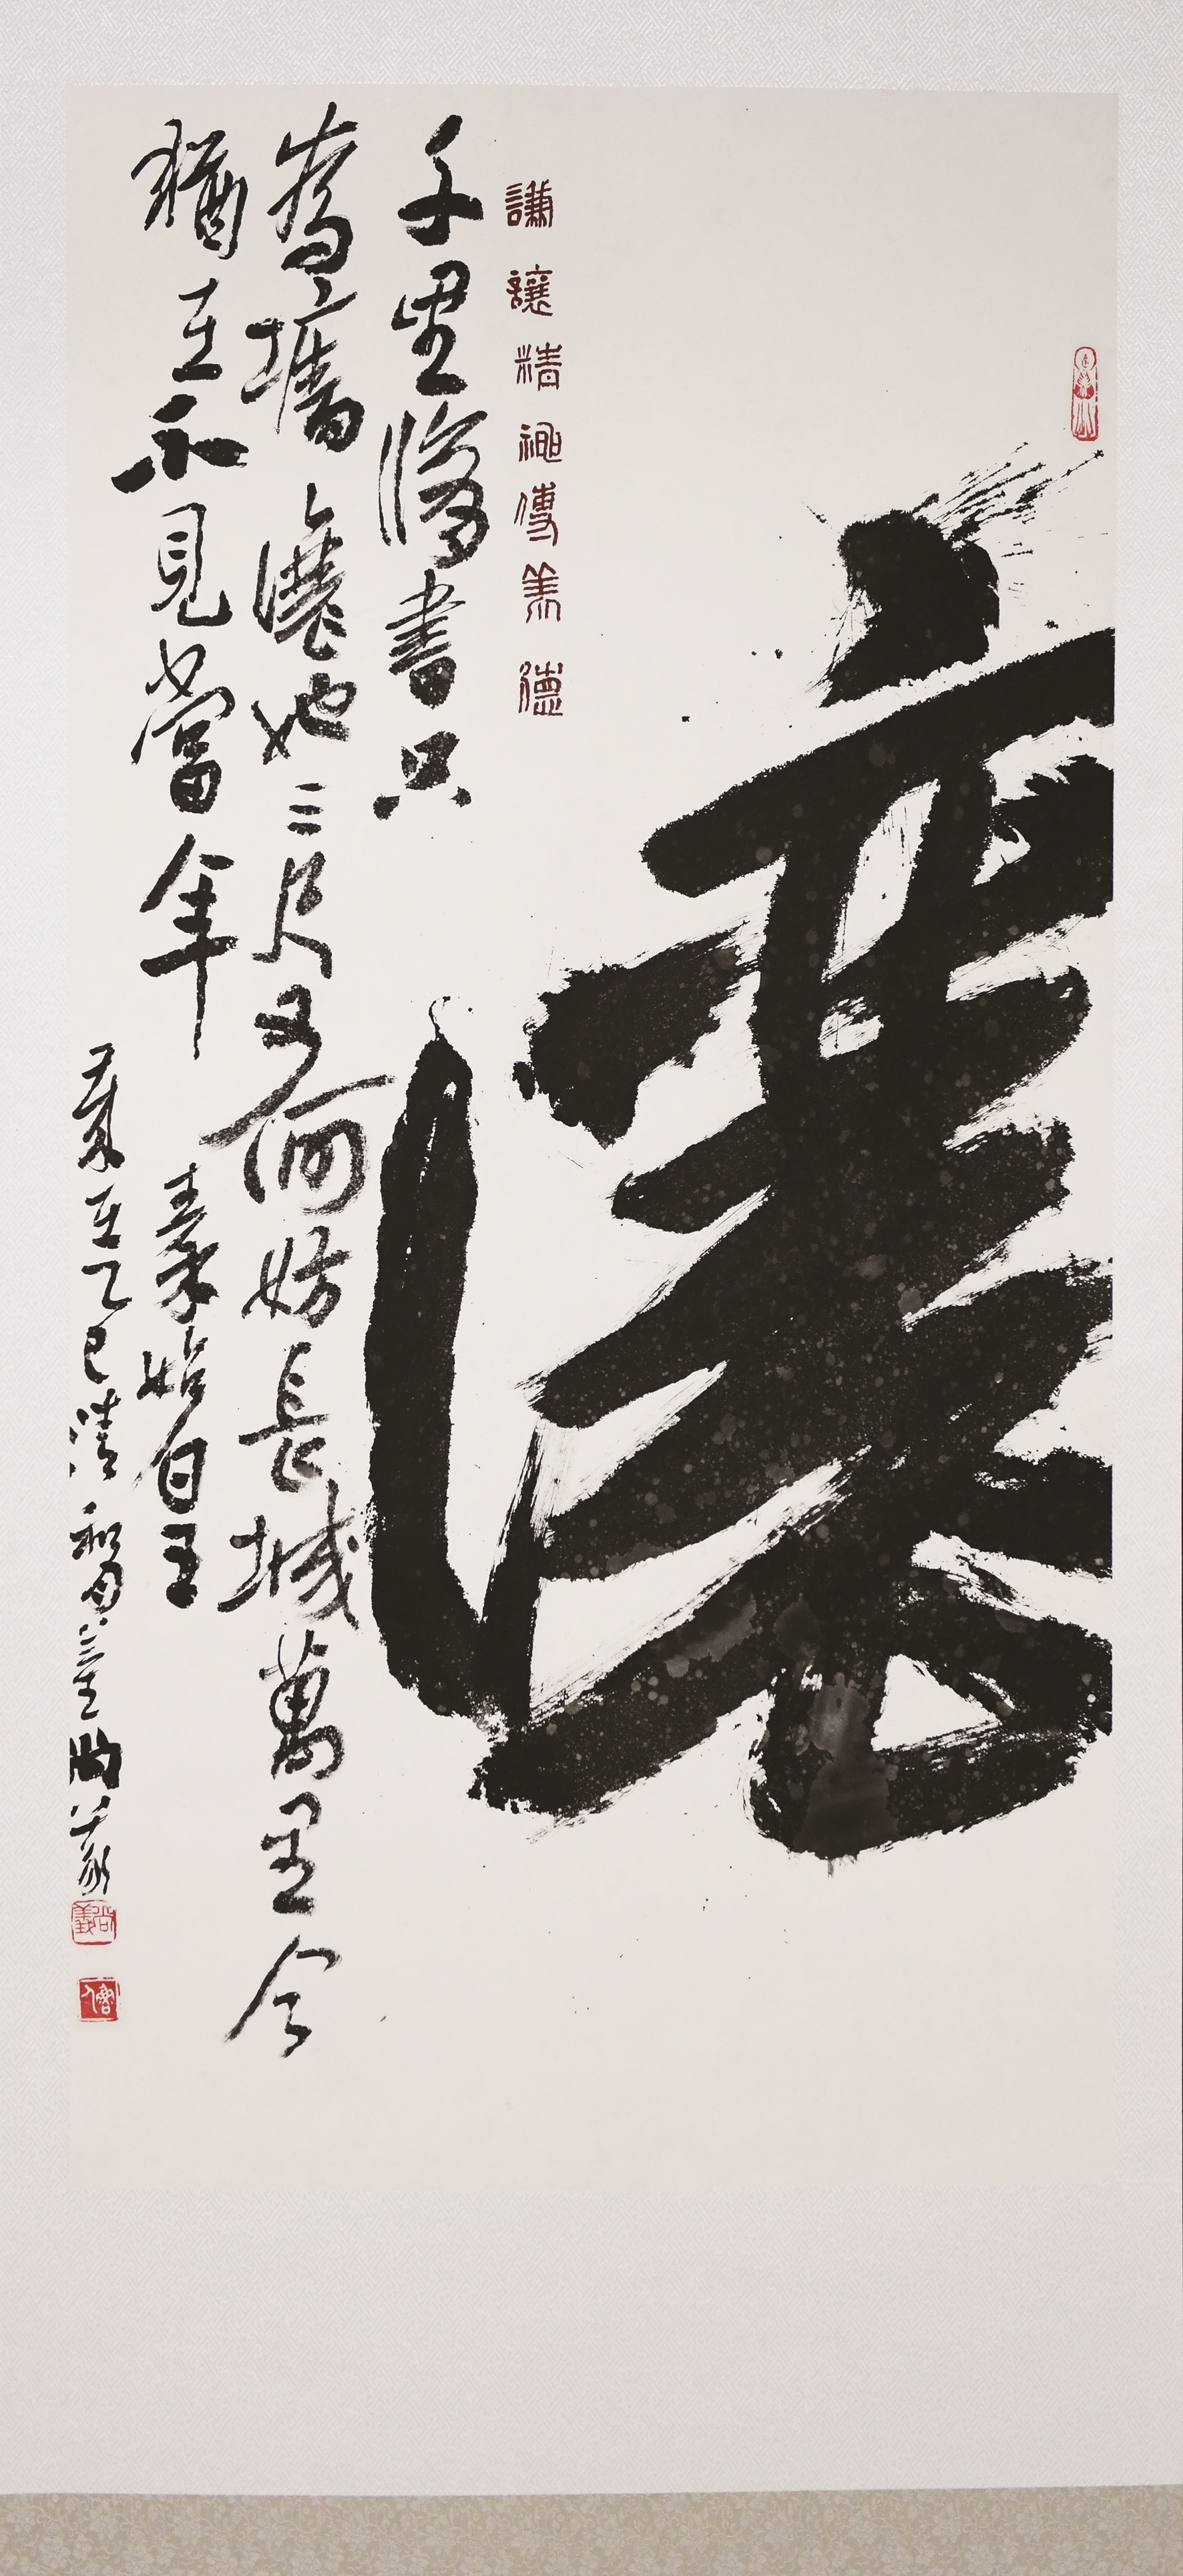 讓
謙讓精神傳美德
千里修書只
為牆讓他三尺又何妨長城萬里今
猶在不見當年
秦始皇
歲在乙巳清和尚義
尚義